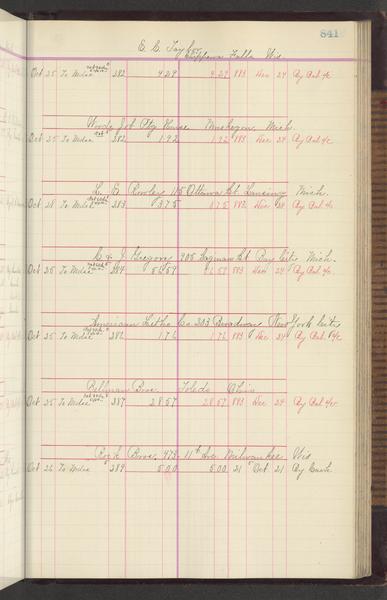 841
E. C. Taylor Chippewa Falls Wis
Oct 25 To Mdse 282 4.29 4.29 883 Dec 24 By Bal a/c
Woods Job Ptg House Muskegon, Mich.
Oct 25 To Mdse 282 1.92 1.92 883 Dec 24 By Bal a/c
L. E. Rowley 115 Ottawa St Lansing Mich.
Oct 28 To Mdse 283 3.75 3.75 883 Dec 24 By Bal a/c
C & J Gregory 905 Saginaw St Bay City Mich.
Oct 25 To Mdse 284 883 Dec 24 By Bal a/c
American Litho Co. 203 Broadway New York City
Oct 25 To Mdse 286 1.76 1.76 883 Dec 24 By Bal a/c
Bellman Bros. Toledo Ohio
Oct 25 To Mdse 287 28.57 28.57 883 Dec 24 By Bal a/c
Rock Bros. 973 11th Ave Milwaukee Wis
Oct 26 To Mdse 289 5.00 5.00 21 Oct 21 By Cash